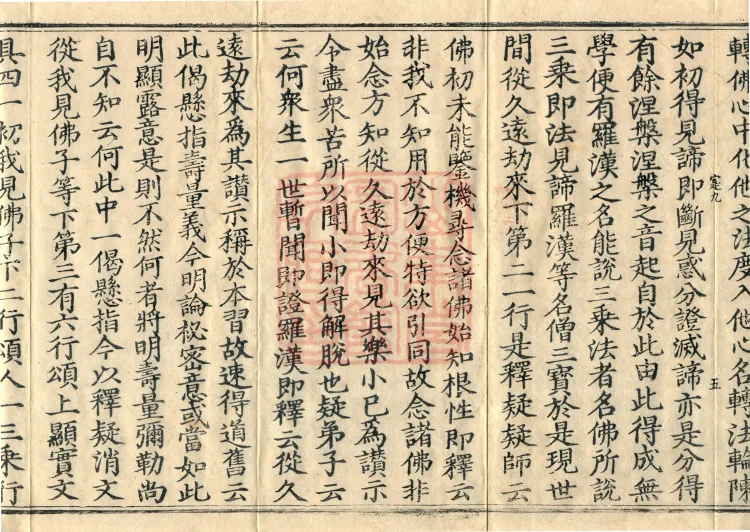 轉佛心中化他之法度入他心名轉法輪陳
如初得見諦即斷見惑分證滅諦亦是分得
有餘涅槃涅槃之音起自於此由此得成無
學便有羅漢之名能說三乘法者名佛所說
三乘即法見諦羅漢等名僧三寶於是現世
間從久遠劫來下第二一行是釋疑疑師云
佛初未能鑒機尋念諸佛始知根性即釋云
非我不知用於方便特欲引同故念諸佛非
始念方知從久遠劫來見其樂小已為讚示
令盡衆苦所以聞小即得解脫也疑弟子云
云何衆生一世暫聞即證羅漢即釋云從久
遠劫來為其讚示稱於本習故速得道舊云
此偈懸指壽量義今明論祕密意或當如此
明顯露意是則不然何者將明壽量彌勒尚
自不知云何此中一偈懸指今以釋疑消文
從我見佛子等下第三有六行頌上顯實文
具四一初我見佛子下二行頌人一三乘行
定九
五